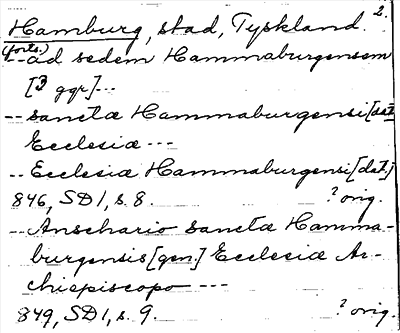 2.
Hamburg, stad, Tyskland.
(forts.)
--ad sedem Hammaburgensem
[3 ggr]---
-- sanctæ Hammaburgensi [dat.]
Ecclesiæ ---
-- Ecclesiæ Hammaburgensi [dat.]
846, SD 1, s. 8. ? orig.
-- Anschario sanctæ Hamma-
burgensis [gen.] Ecclesiæ Ar-
chiepiscopo ---
849, SD 1, s. 9. ? orig.